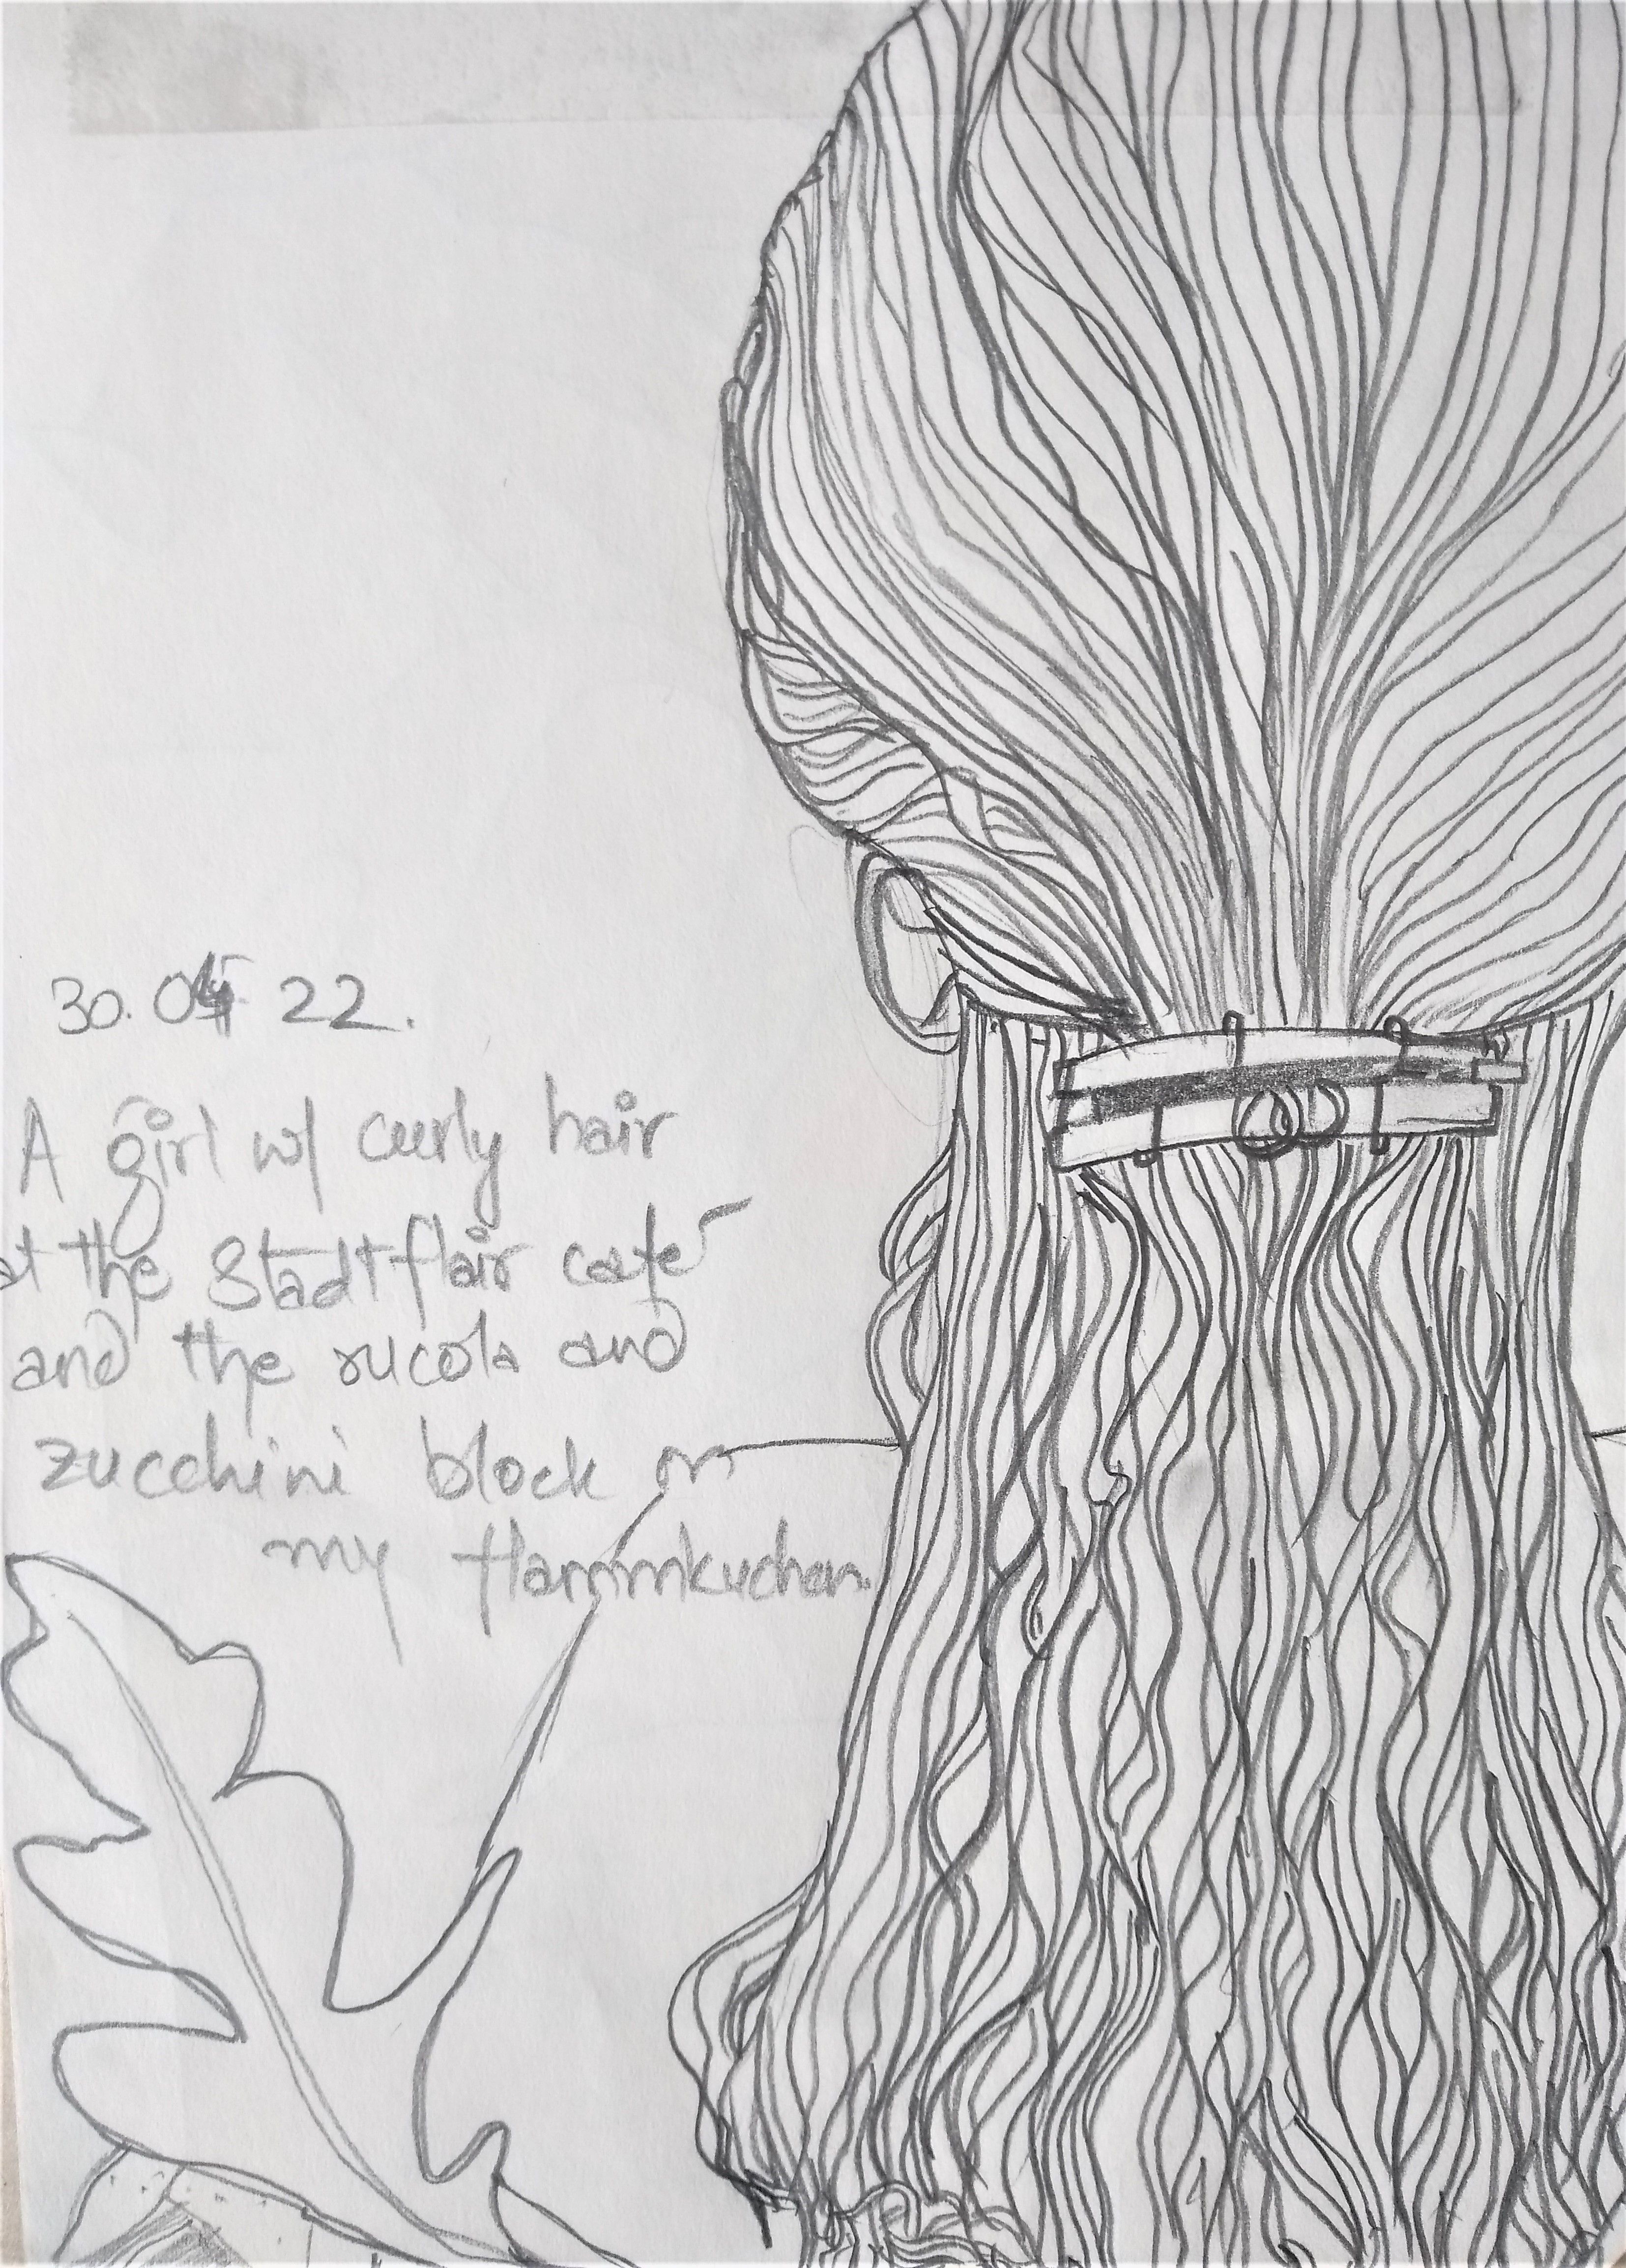 30. 04 22.
A girl w/ curly hair
at the Stadtflair café
and the rucola and
zucchini block on
my flammkuchen.